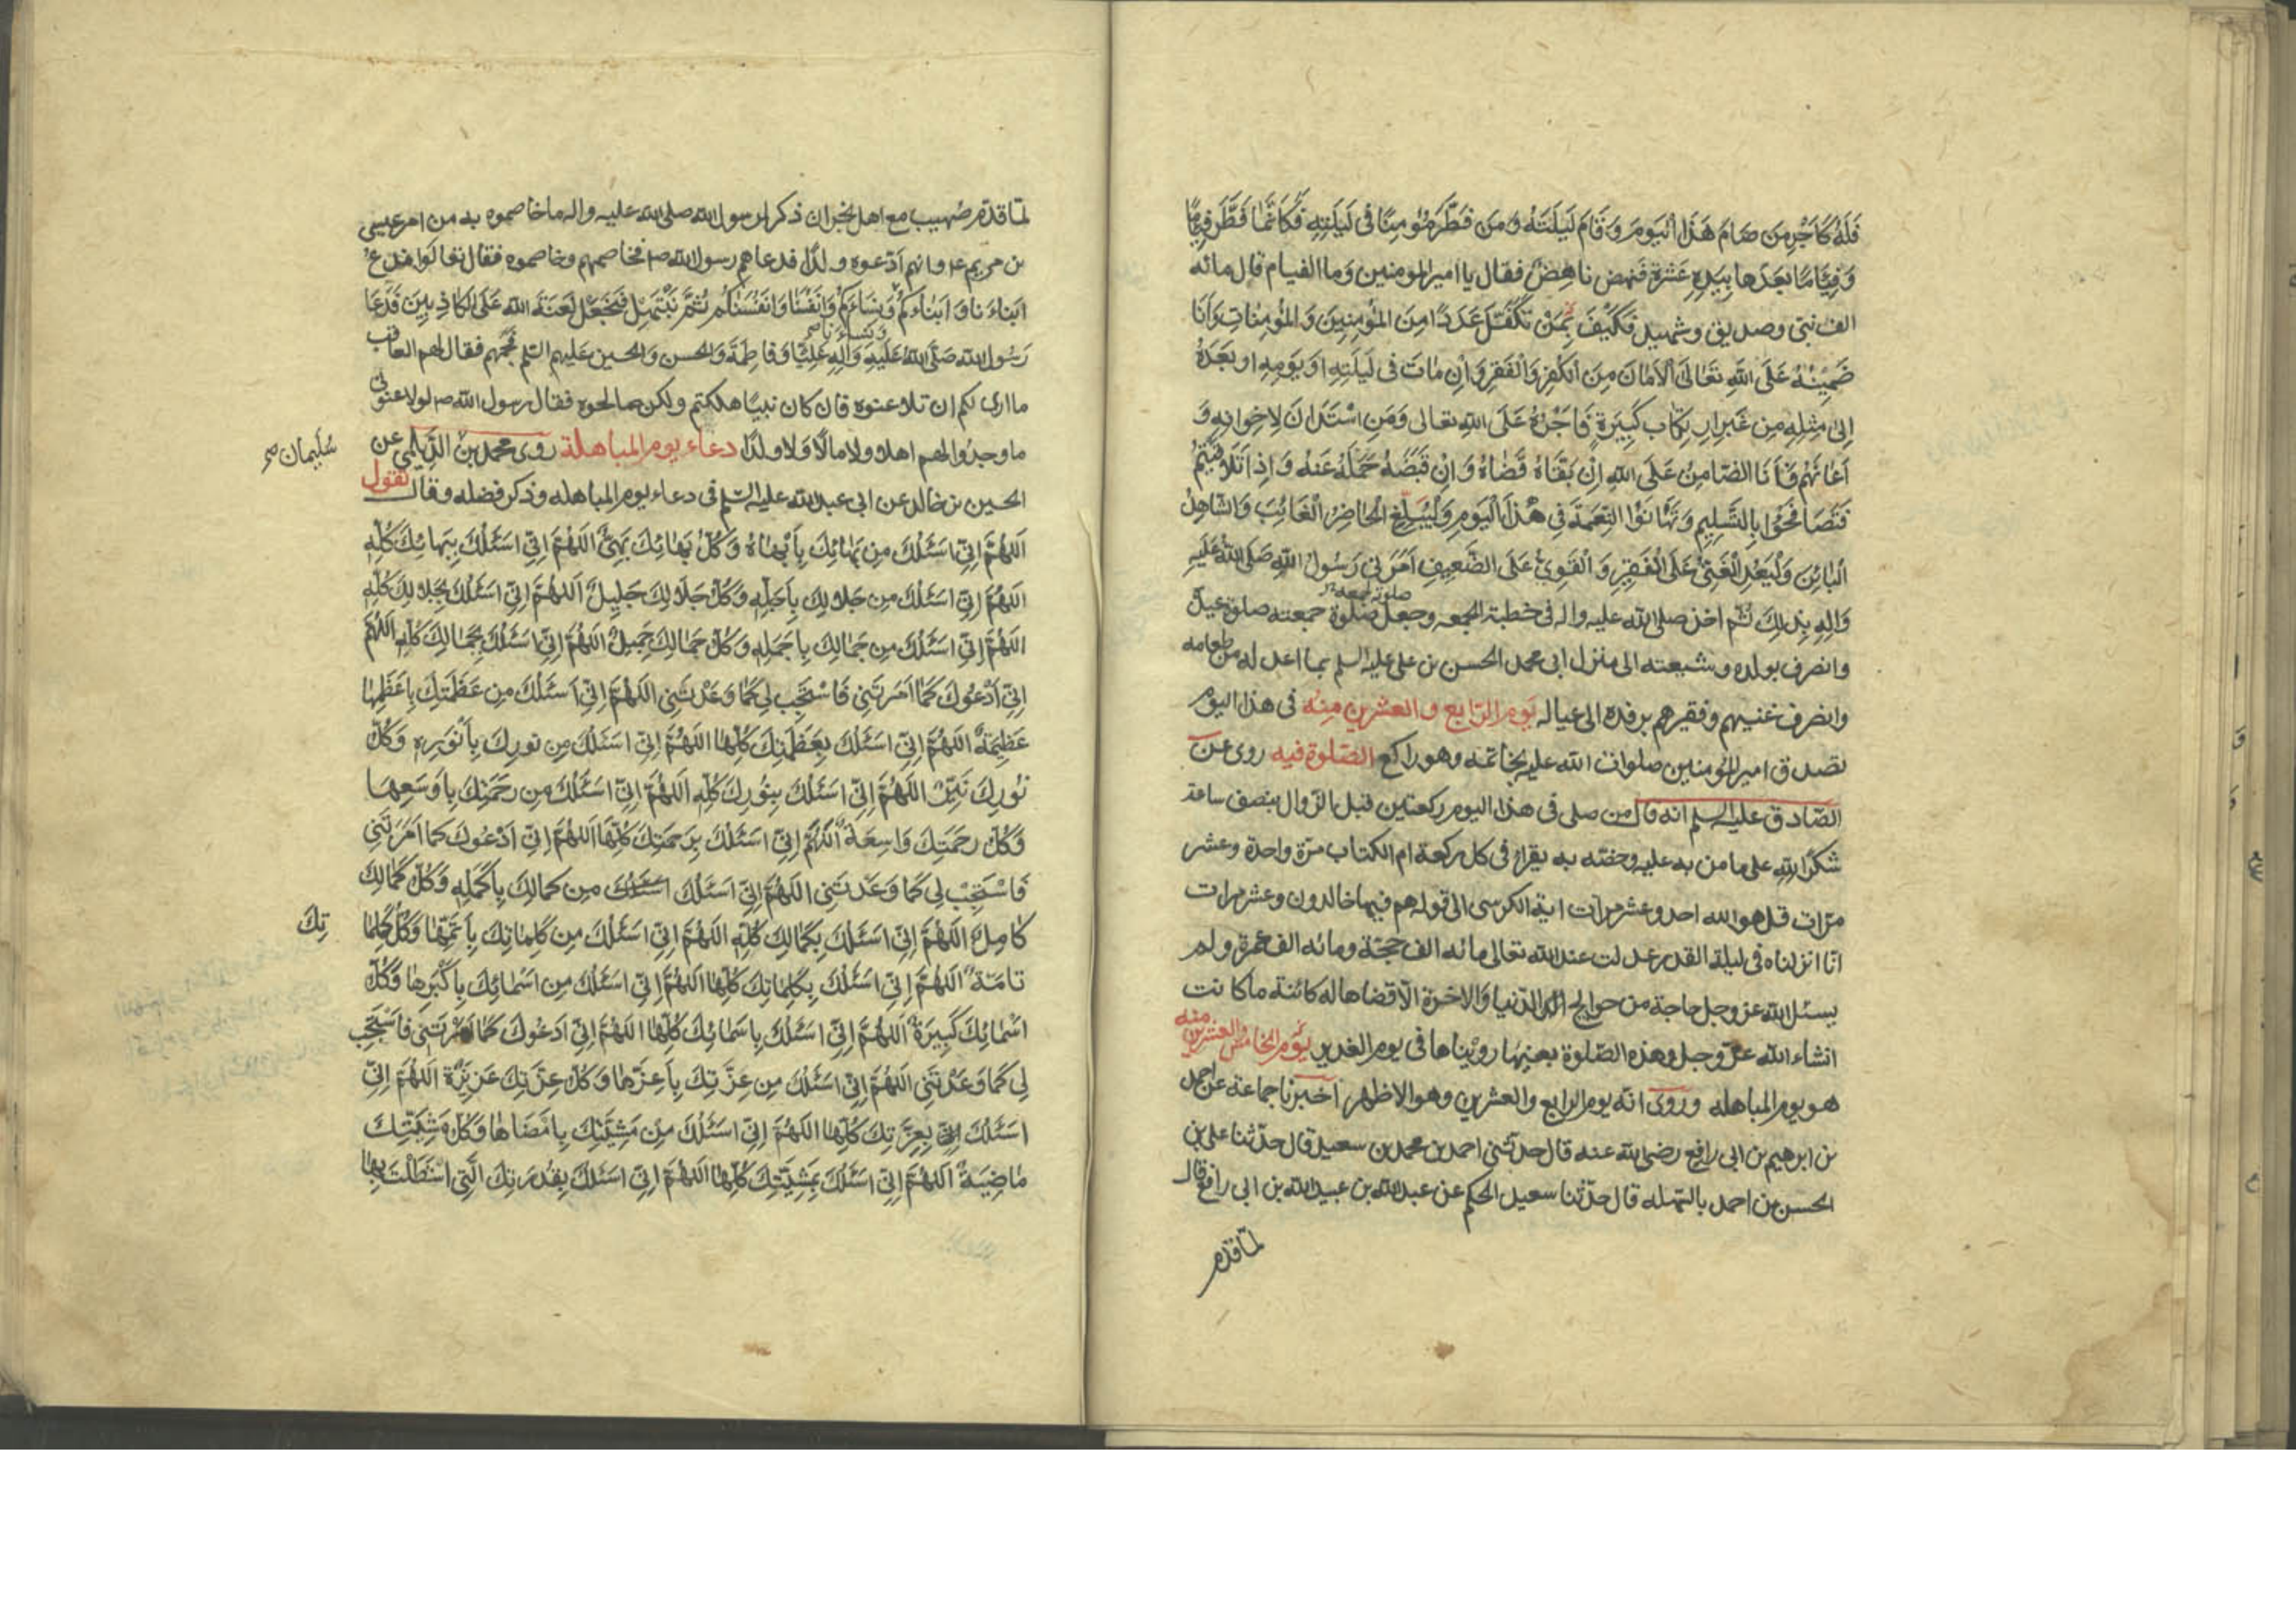 فَلَهُ كَاَجْرِ مَن صَامَ هَذَا الْيَومَ وَقَامَ لَيلَتَهُ وَمَن فَطَّرَ مُؤمِنًا فى لَيلَتِهِ فَكَاَنَّمَا فَطَّرَ فِيَامًا
وَفِيَامًا بعَدَها بِيَدِهِ عَشَرَةً فنهض ناهِضٌ فقال يا اميرالمومنين وَما الفيام قال مائه
الف نبى وصديق وشهيد فَكَيْفَ بِمَنْ تَكَفَّلَ عَدَدًا مِنَ المُؤمِنِينَ وَالمُؤمِناتِ وَاَنَا
ضَمِينُهُ عَلَى اللهِ تَعَالَى الاَمَانَ مِنَ الكُفرِ وَالفَقرِ وَاِنْ مَاتَ فى لَيلَتِهِ اَو يَومِهِ او بَعدَهُ
اِلى مِثلِهِ مِن غَيرِ ارتِكَابِ كَبِيرَةٍ فَاَجرُهُ عَلَى اللهِ تعالى وَمَنِ اسْتَدَانَ لِاخوانِهِ وَ
اَعَانَهُم فَاَنَا الضّامِنُ عَلَى اللهِ اِنْ بَقَّاهُ قَضَاهُ وَاِنْ قَبَضَهُ حَمَلَهُ عَنهُ وَاِذا تَلاقَيتُم
فَتَصَافَحُوا بِالتَّسلِيمِ وَتَهَانَوُا النِّعمَةَ فى هَذَا اليَومِ وَليُبَلِّغِ الحَاضِرُ الغَائِبَ وَالشّاهِدُ
البَائِنَ وَليَعُدِ الغَنِىُّ عَلَى الفَقِيرِ وَالقَوِىُّ عَلَى الضَّعِيفِ اَمَرَنى رَسُولُ اللهِ صَلَّى اللهُ عَلَيهِ
وَالِهِ بِذلِكَ ثم اخذ صلى الله عليه واله فى خطبة الجمعه وجعل صلوة جمعته صلوة عيده
وانصرف بولده وشيعته الى منزل ابى محمد الحسن بن على عليه السلم بما اعد له من طعامه
وانصرف غنيهم وفقيرهم برفده الى عياله يوم الرابع والعشرين منه فى هذا اليوم
تصدق اميرالمومنين صلوات الله عليه بخاتمه وهو راكع الصّلوة فيه روى عن
الصّادق عليه السلم انه قال من صلى فى هذا اليوم ركعتين قبل الزوال بنصف ساعة
شكرًا لله على ما من به عليه وخصه به يقرا فى كل ركعة ام الكتاب مرّة واحدة وعشر
مرّات قل هو الله احد وعشر مرات اية الكرسى الى قوله هم فيها خالدون وعشر مرات
انّا انزلناه فى ليلة القدر عدلت عند الله تعالى مائه الف حجّة ومائه الف عمرة ولم
يسئل الله عز وجل حاجة من حوائج الدنيا والاخرة الّا قضاها له كائنة ما كانت
انشاء الله عزّ وجل وهذه الصّلوة بعينها رويناها فى يوم الغدير يوم الخامس والعشرين منه
هو يوم المباهله وروى انه يوم الرابع والعشرين وهو الاظهر اخبرنا جماعة عن احمد
بن ابرهيم بن ابى رافع رضى الله عنه قال حدّثنى احمد بن محمد بن سعيد قال حدّثنا على بن
الحسن بن احمد قال حدّثنا سعيد الحكم عن عبدالله بن عبيدالله بن ابى رافع قال
لمّا قدم
لمّا قدم صُهيب مع اهل نجران ذكر لرسول الله صلى الله عليه واله ما خاصموه به من امر عيسى
بن مريم ع وانهم ادّعوه ولدًا فدعاهم رسول الله ص فخاصمهم وخاصموه فقال تعالوا ندع
ابناءنا وابناءكم ونساءنا ونساءكم وانفسنا وانفسكم ثم نبتهل فنجعل لعنة الله على الكاذبين فدعا
رسول الله صلّى الله عليه واله عليًّا وفاطمة والحسن والحسين عليهم السّلم فجمعهم فقال لهم العاقب
ما ارى لكم ان تلاعنوه فان كان نبيًا هلكتم ولكن صالحوه فقال رسول الله ص لو لاعنونى
ما وجدوا لهم اهلا ولا مالًا ولا ولدًا دعاء يوم المباهلة روى محمد بن الدّيلمى عن
سُلَيمان صح
الحسين بن خالد عن ابى عبدالله عليه السّلم فى دعاء يوم المباهله وذكر فضله وقال تقول
اَللّهُمَّ اِنّى اَسئَلُكَ مِن بَهائِكَ بِاَبهاهُ وَكُلُّ بَهائِكَ بَهِىٌّ اَللّهُمَّ اِنّى اَسئَلُكَ بِبَهائِكَ كُلِّهِ
اَللّهُمَّ اِنّى اَسئَلُكَ مِن جَلالِكَ بِاَجَلِّهِ وَكُلُّ جَلالِكَ جَلِيلٌ اَللّهُمَّ اِنّى اَسئَلُكَ بِجَلالِكَ كُلِّهِ
اَللّهُمَّ اِنّى اَسئَلُكَ مِن جَمالِكَ بِاَجمَلِهِ وَكُلُّ جَمالِكَ جَمِيلٌ اَللّهُمَّ اِنّى اَسئَلُكَ بِجَمالِكَ كُلِّهِ اَللّهُمَّ
اِنّى اَدعُوكَ كَما اَمَرتَنِى فَاستَجِب لِى كَما وَعَدتَنِى اَللّهُمَّ اِنّى اَسئَلُكَ مِن عَظَمَتِكَ بِاَعظَمِها
عَظِيمَةٌ اَللّهُمَّ اِنّى اَسئَلُكَ بِعَظَمَتِكَ كُلِّها اَللّهُمَّ اِنّى اَسئَلُكَ مِن نُورِكَ بِاَنوَرِهِ وَكُلُّ
نُورِكَ نَيِّرٌ اَللّهُمَّ اِنّى اَسئَلُكَ بِنُورِكَ كُلِّهِ اَللّهُمَّ اِنّى اَسئَلُكَ مِن رَحمَتِكَ بِاَوسَعِها
وَكُلُّ رَحمَتِكَ وَاسِعَةٌ اَللّهُمَّ اِنّى اَسئَلُكَ بِرَحمَتِكَ كُلِّها اَللّهُمَّ اِنّى اَدعُوكَ كما اَمَرتَنِى
فَاستَجِب لِى كَما وَعَدتَنِى اَللّهُمَّ اِنّى اَسئَلُكَ مِن كَمالِكَ بِاَكمَلِهِ وَكُلُّ كَمالِكَ
كامِلٌ اَللّهُمَّ اِنّى اَسئَلُكَ بِكَمالِكَ كُلِّهِ اَللّهُمَّ اِنّى اَسئَلُكَ مِن كَلِماتِكَ بِاَتَمِّها وَكُلُّ كَلِما
تِكَ
تامّةٌ اَللّهُمَّ اِنّى اَسئَلُكَ بِكَلِماتِكَ كُلِّها اَللّهُمَّ اِنّى اَسئَلُكَ مِن اَسمائِكَ بِاَكبَرِها وَكُلُّ
اَسمائِكَ كَبِيرَةٌ اَللّهُمَّ اِنّى اَسئَلُكَ بِاَسمائِكَ كُلِّها اَللّهُمَّ اِنّى اَدعُوكَ كَما اَمَرتَنِى فَاستَجِب
لِى كَما وَعَدتَنِى اَللّهُمَّ اِنّى اَسئَلُكَ مِن عِزَّتِكَ بِاَعَزِّها وَكُلُّ عِزَّتِكَ عَزِيزَةٌ اَللّهُمَّ اِنّى
اَسئَلُكَ بِعِزَّتِكَ كُلِّها اَللّهُمَّ اِنّى اَسئَلُكَ مِن مَشِيَّتِكَ بِاَمضاها وَكُلُّ مَشِيَّتِكَ
ماضِيَةٌ اَللّهُمَّ اِنّى اَسئَلُكَ بِمَشِيَّتِكَ كُلِّها اَللّهُمَّ اِنّى اَسئَلُكَ بِقُدرَتِكَ الَّتِى استَطَلتَ بِها